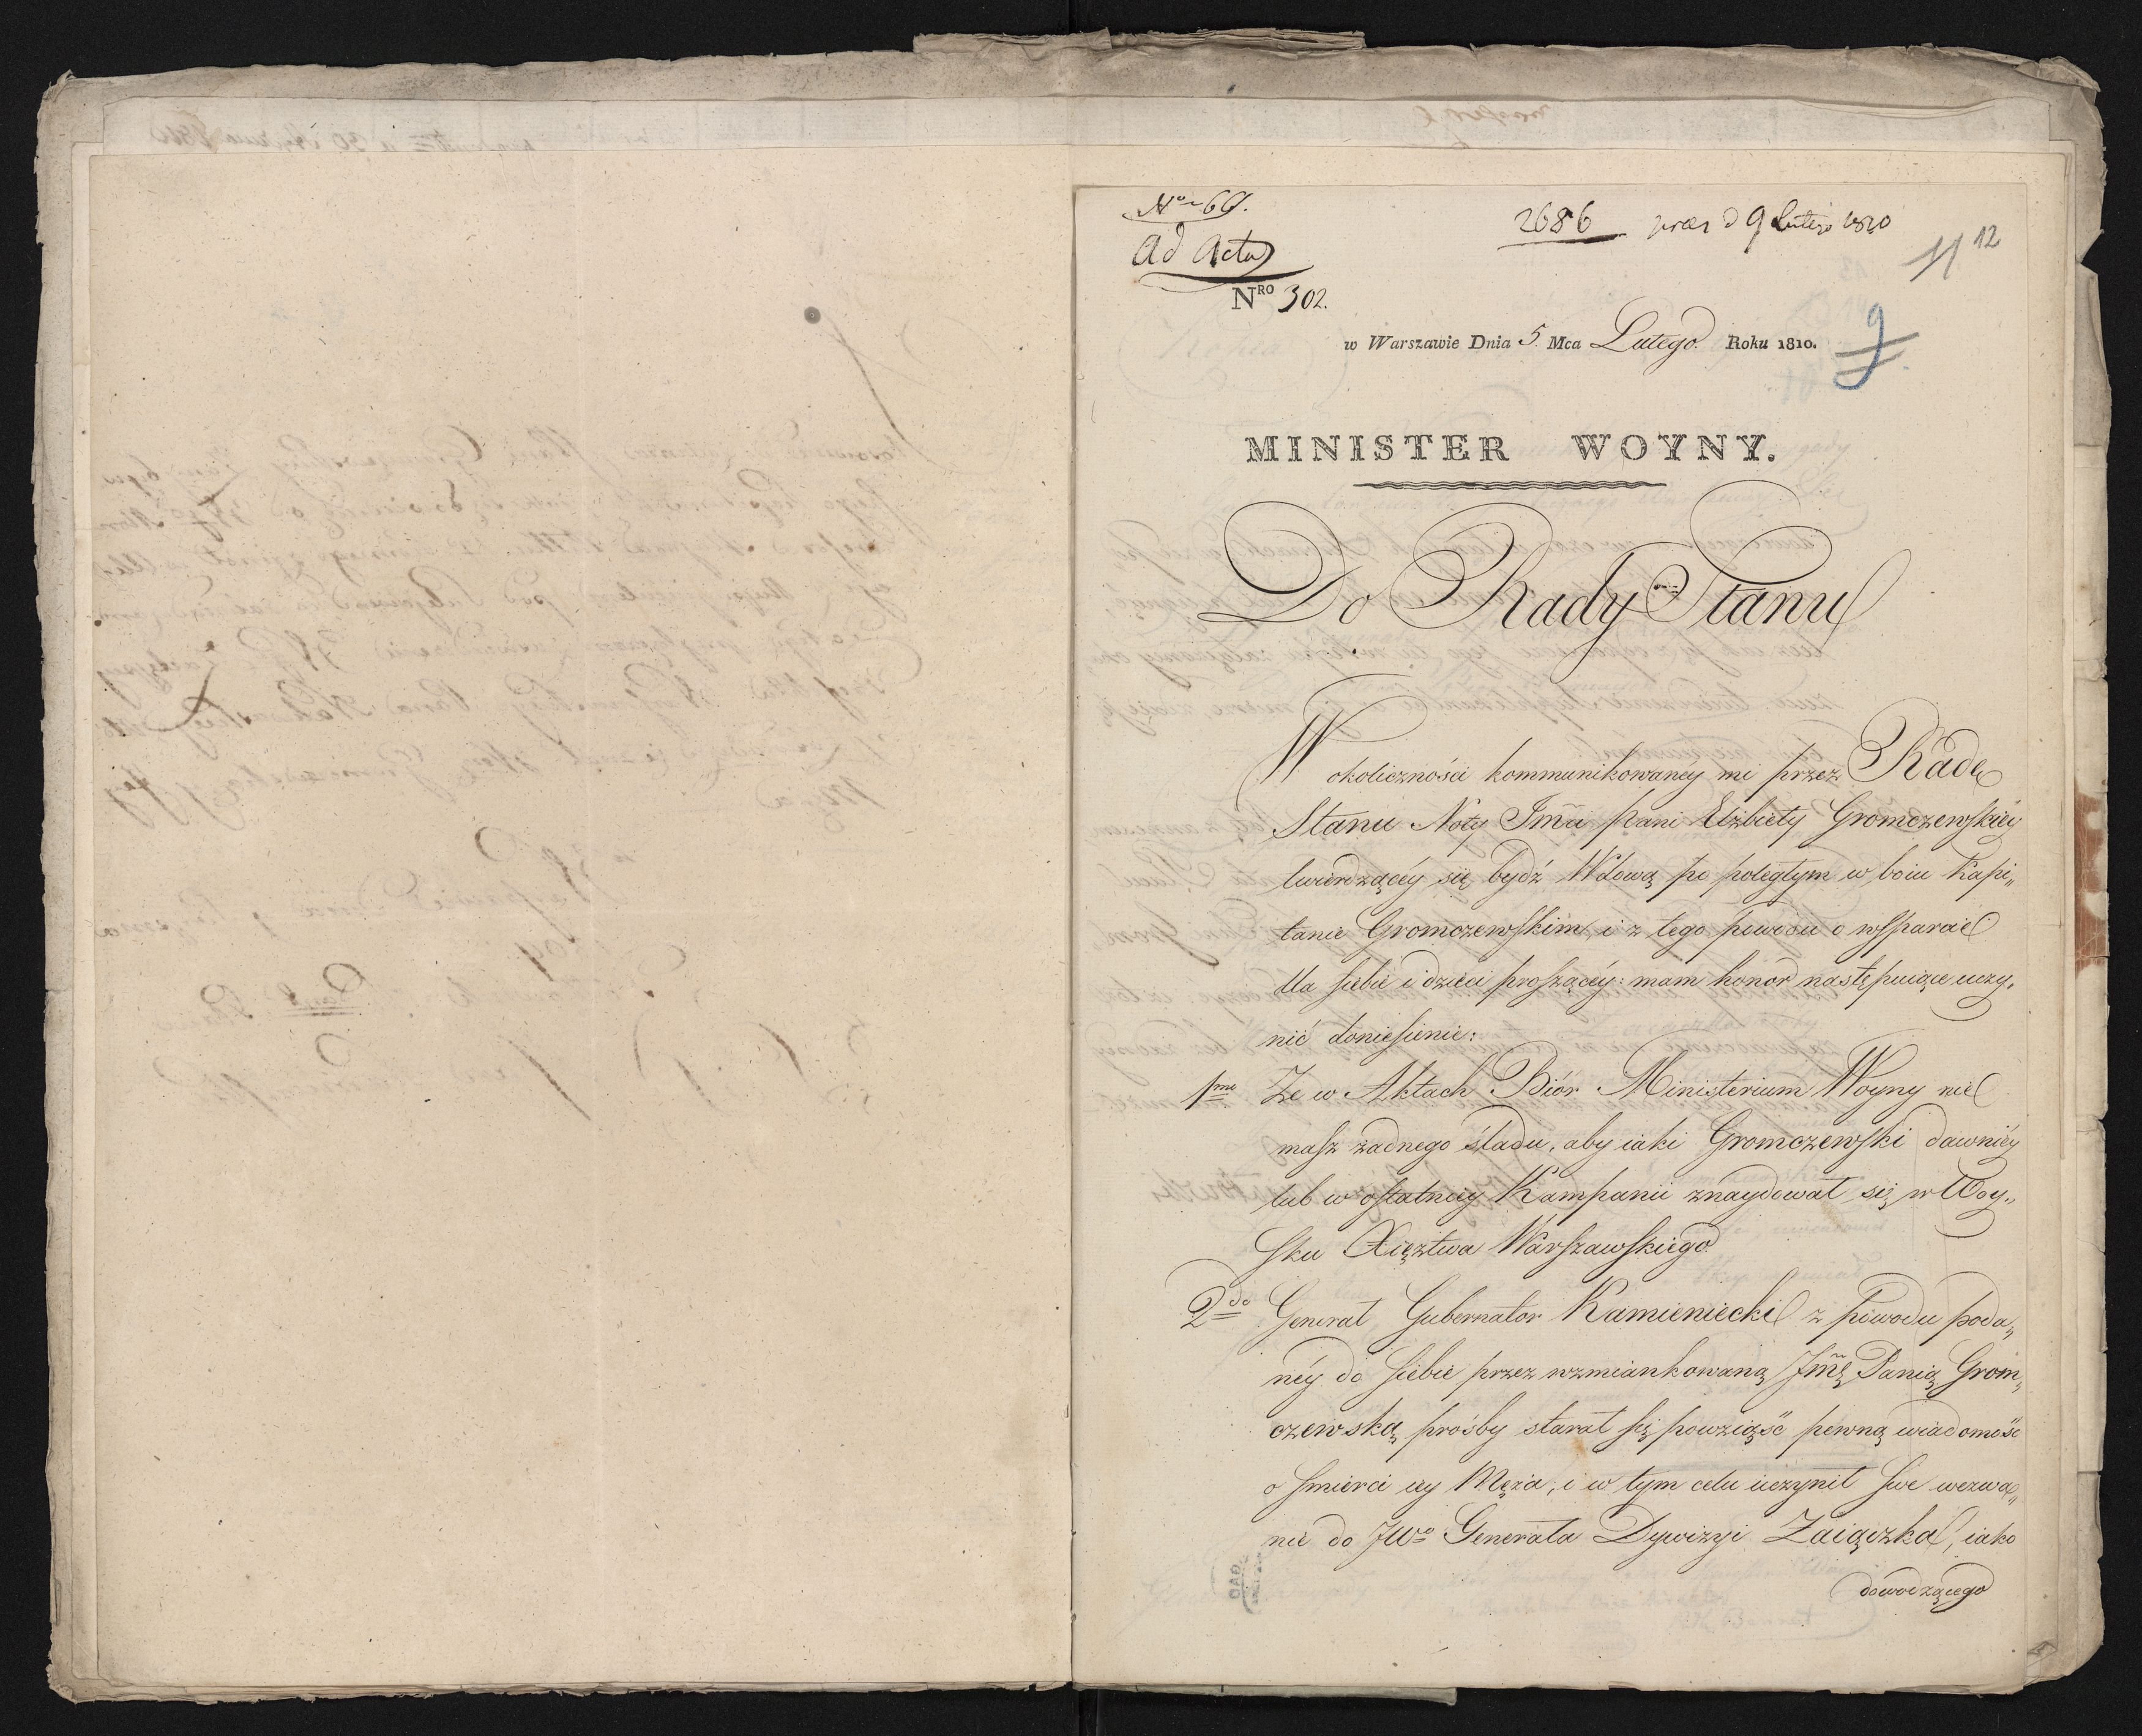 Nro 69.
Ad Acta
2686 praes d 9 Lutego 1810
11 12
NRO 302.
9
w Warszawie Dnia 5. Mca Lutego. Roku 1810.
MINISTER WOYNY.
Do Rady Stanu
W okoliczności kommunikowanéy mi przez Radę
Stanu Noty Jmći Pani Elżbiety Gromczewskiéy
twierdzącéy się bydź Wdową po poległym w boiu Kapi„
tanie Gromczewskim, i z tego powodu o wsparcie
dla siebie i dzieci proszącéy: mam honor następuiące uczy„
nić doniesienie:
1mo Że w Aktach Biór Ministerium Woyny nie
masz żadnego śladu, aby iaki Gromczewski dawniéy
lub w ostatniéy Kampanii znaydował się w Woy„
sku Xięztwa Warszawskiego.
2do Generał Gubernator Kamieniecki z powodu poda„
néy do siebie przez wzmiankowaną Jmę Panią Grom„
czewską prośby starał się powziąść pewną wiadomość
o śmierci iéy Męża, i w tym celu uczynił swe wezwa„
nie do JWo Generała Dywizyi Zaiączka, iako
dowodzącego